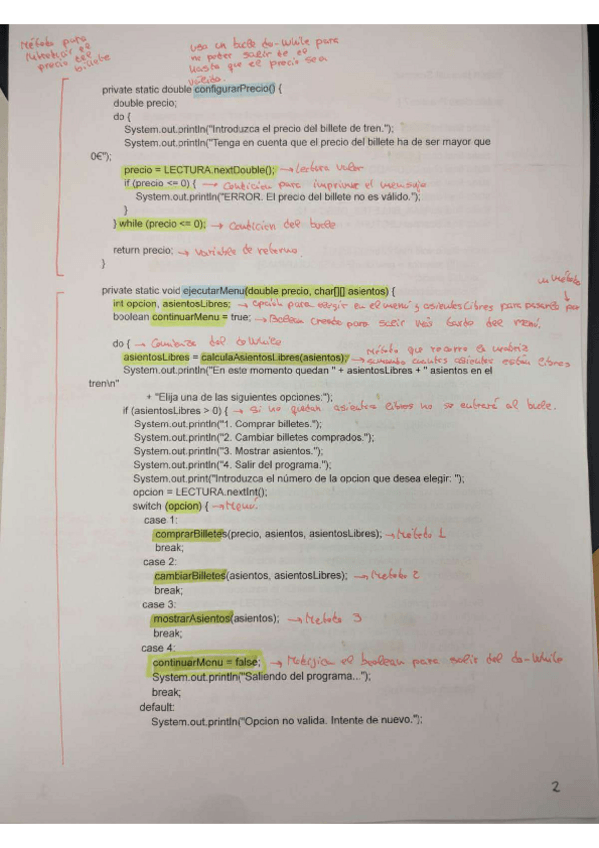 Método para
introducir el
precio del
billete
uso un bucle do-while para
no poder salir de el
hasta que el precio sea
válido.
private static double configurarPrecio() {
double precio;
do {
System.out.println("Introduzca el precio del billete de tren.");
System.out.println("Tenga en cuenta que el precio del billete ha de ser mayor que
0€");
precio = LECTURA.nextDouble(); → Lectura valor
if (precio <= 0) { → Condicion para imprimir el mensaje
System.out.println("ERROR. El precio del billete no es válido.");
}
} while (precio <= 0); → Condicion del bucle
return precio; → Variable de retorno
}
un método
private static void ejecutarMenu(double precio, char[][] asientos) {
int opcion, asientosLibres; → Opción para elegir en el menú y asientos Libres para pasarlo por
boolean continuarMenu = true; → Boolean creado para salir del menú.
do { → Comienzo del do while
asientosLibres = calculaAsientosLibres(asientos); → Método que recorre la matriz
cuantos asientos están libres
System.out.println("En este momento quedan " + asientosLibres + " asientos en el
tren\n"
+ "Elija una de las siguientes opciones:");
if (asientosLibres > 0) { → Si no quedan asientos libres no se entrará al bucle.
System.out.println("1. Comprar billetes.");
System.out.println("2. Cambiar billetes comprados.");
System.out.println("3. Mostrar asientos.");
System.out.println("4. Salir del programa.");
System.out.print("Introduzca el número de la opcion que desea elegir: ");
opcion = LECTURA.nextInt();
switch (opcion) { → Menú.
case 1:
comprarBilletes(precio, asientos, asientosLibres); → Metodo 1
break;
case 2:
cambiarBilletes(asientos, asientosLibres); → Metodo 2
break;
case 3:
mostrarAsientos(asientos); → Metodo 3
break;
case 4:
continuarMenu = false; → el boolean para salir del do-while
System.out.println("Saliendo del programa...");
break;
default:
System.out.println("Opcion no valida. Intente de nuevo.");
2